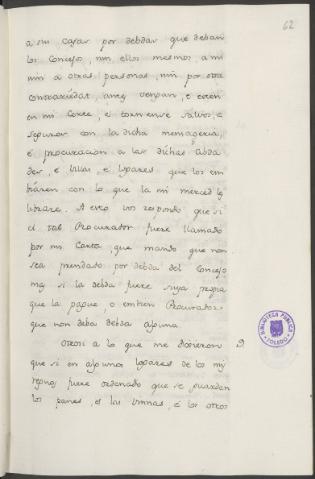 62
a sus casas por debdas que deban
los Concejos, nin ellos mesmos, a mi
nin a otras personas, nin por otra
contrariedat, antes vengan, e esten
en mi Corte, e tornense salvos, e
seguros con la dicha mensageria,
e procuracion a las dichas Cibda
des, e Villas, e Lugares que los em
biaren con lo que la mi merced les
librare. A esto vos respondo que si
el tal Procurador fuere llamado
por mi Carta, que mando que non
sea prendado por debda del Concejo
mas si la debda fuere suya propia
que la pague, o embien Procurador
que non deba debda alguna.
Otrosi a lo que me dixieron 9
que si en algunos lugares de los mis
regnos fuere ordenado que se guarden
los panes, e las vinnas, e los otros
BIBLIOTECA PUBLICA
TOLEDO